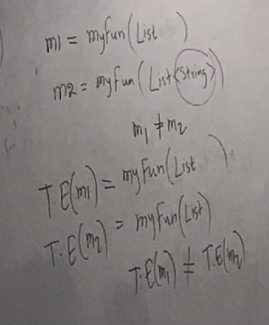 m1 = myFun(List )
m2 = myFun(List<String>)
m1 ≠ m2
T.E(m1) = myFun(List )
T.E(m2) = myFun(List)
T.E(m1) ≠ T.E(m2)